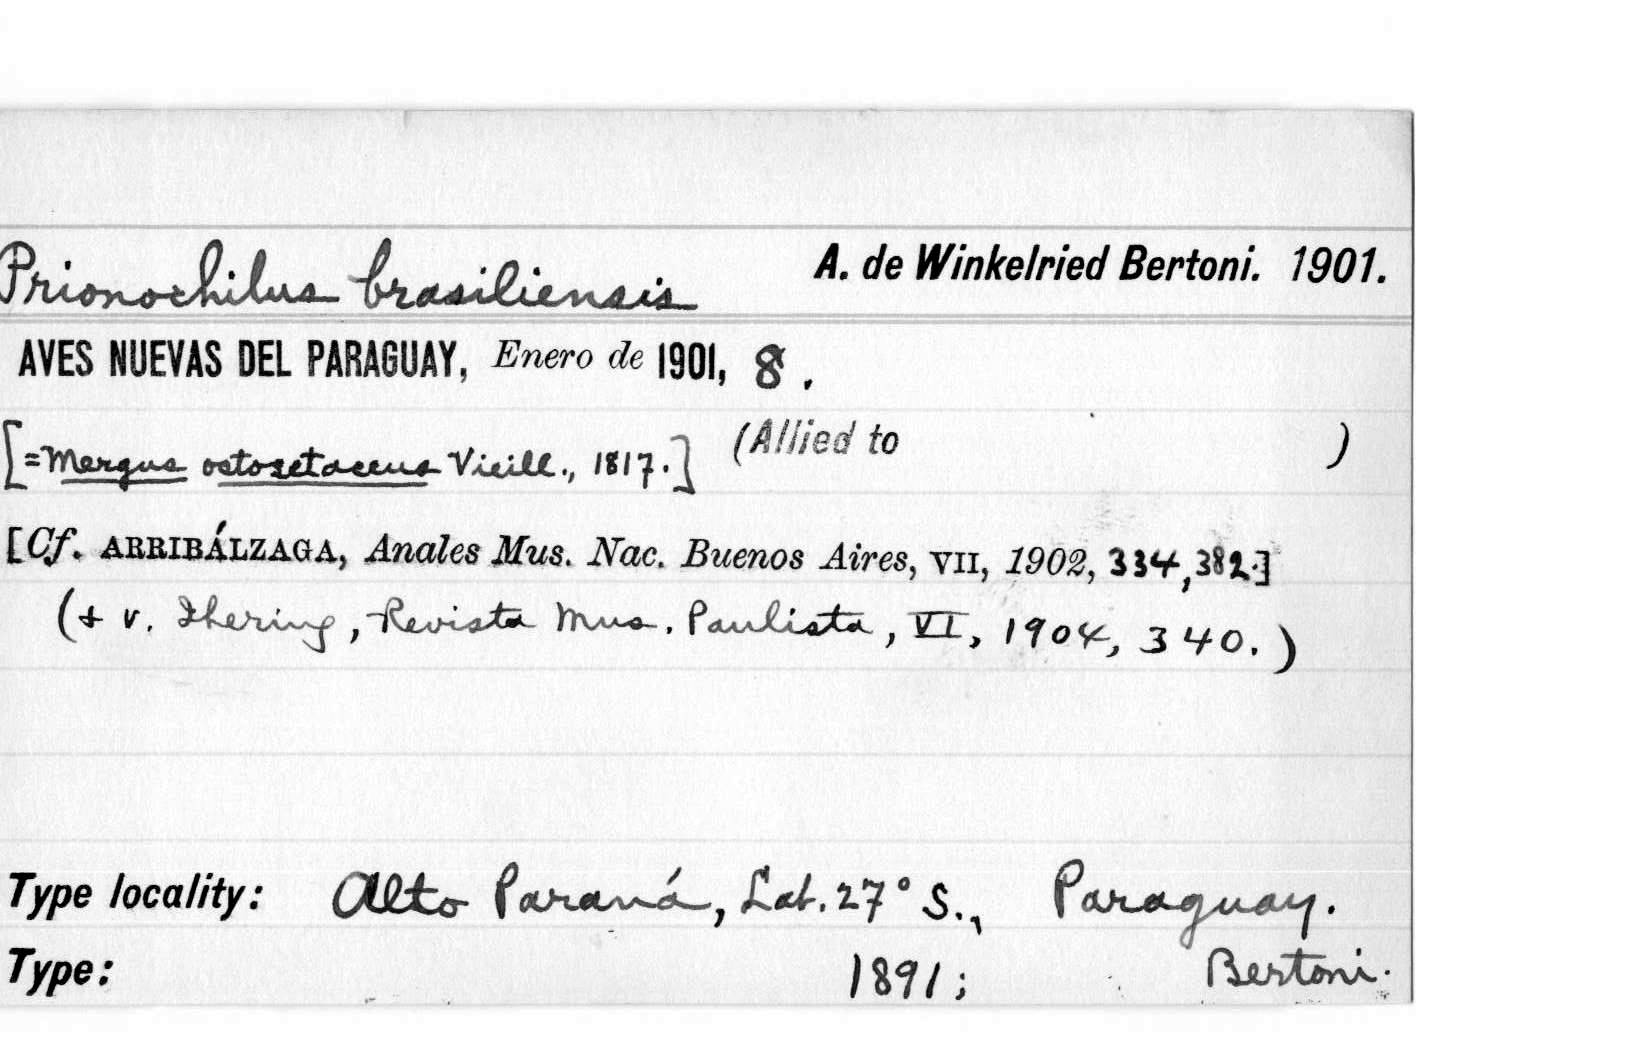 Prionochilus brasiliensis A. de Winkelried Bertoni. 1901.
AVES NUEVAS DEL PARAGUAY, Enero de 1901, 8.
[=Mergus octosetaceus Vieill., 1817.] (Allied to )
[Cf. ARRIBÁLZAGA, Anales Mus. Nac. Buenos Aires, VII, 1902, 334,382.]
(+ v. Ihering, Revista Mus. Paulista, VI, 1904, 340.)
Type locality: Alto Paraná, Lat. 27° S., Paraguay.
Type: 1891; Bertoni.